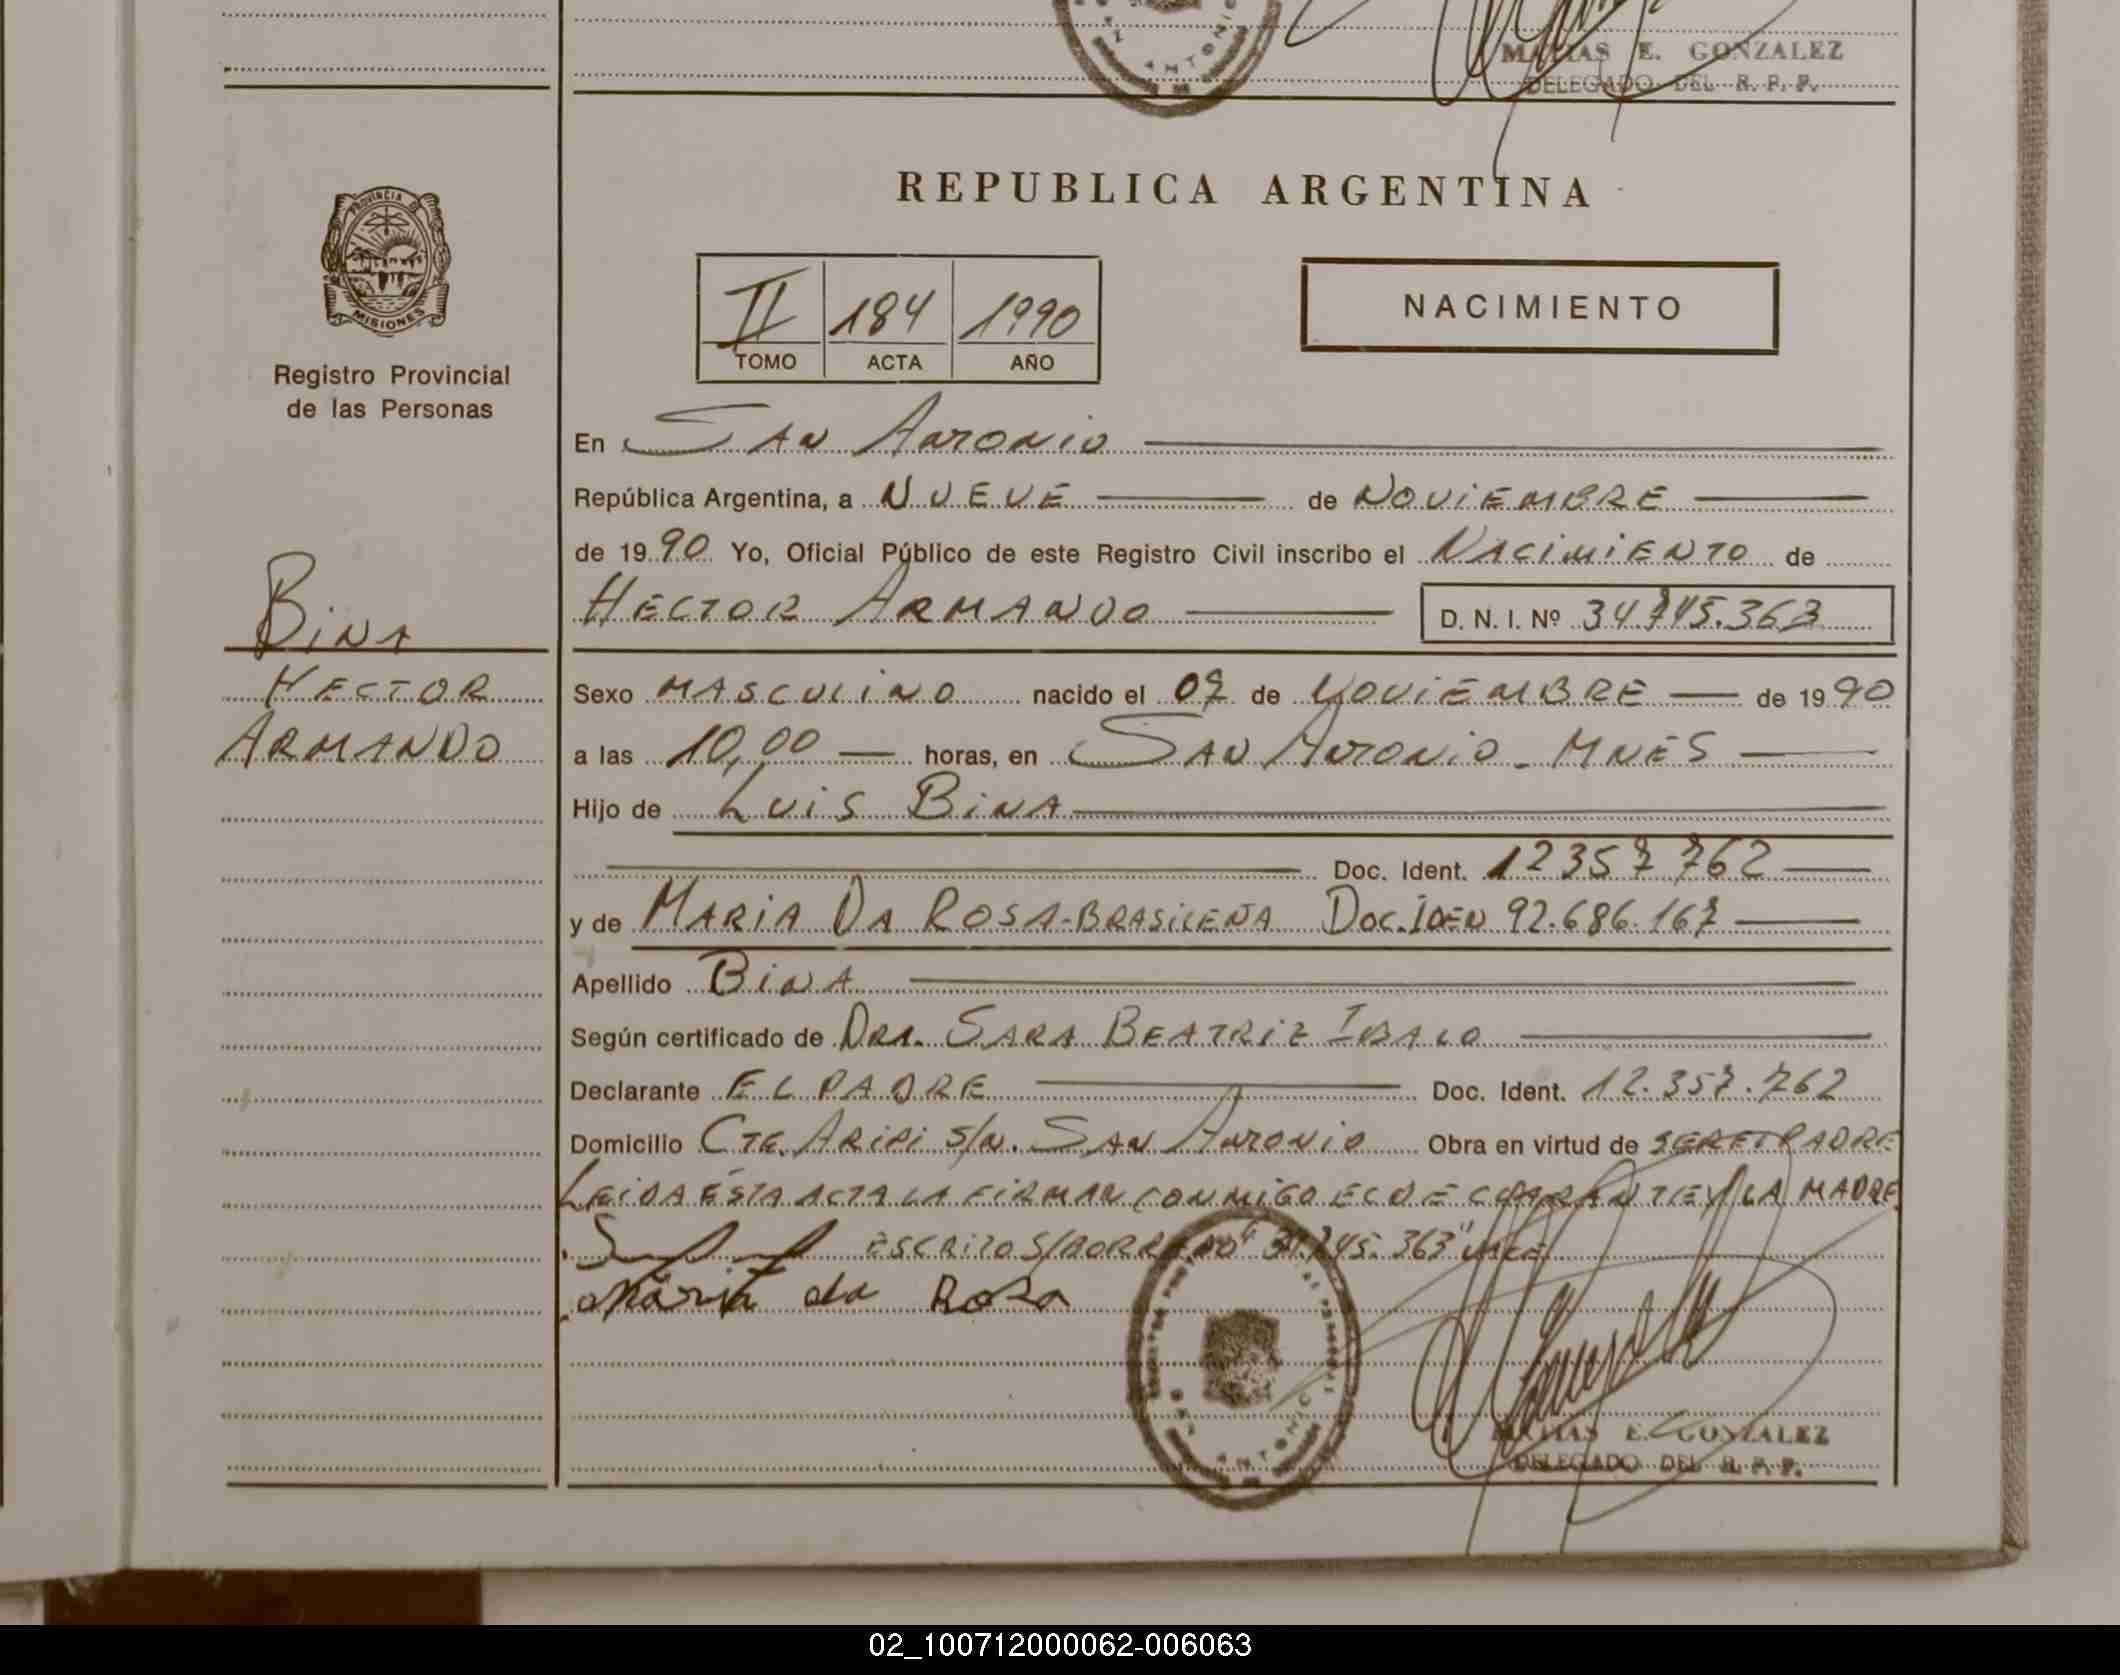 MATIAS E. GONZALEZ
DELEGADO DEL R. P. P.
REPUBLICA ARGENTINA
PROVINCIA DE
MISIONES
Registro Provincial
de las Personas
II 184 1990
TOMO ACTA AÑO
NACIMIENTO
En SAN ANTONIO
República Argentina, a NUEVE de NOVIEMBRE
de 1990 Yo, Oficial Público de este Registro Civil inscribo el NACIMIENTO de
HECTOR ARMANDO D. N. I. Nº 34.745.363
BINA
HECTOR
ARMANDO
Sexo MASCULINO nacido el 07 de NOVIEMBRE de 1990
a las 10,00 horas, en SAN ANTONIO - MNES
Hijo de LUIS BINA
Doc. Ident. 12357762
y de MARIA DA ROSA-BRASILEÑA DOC.IDEN 92.686.167
Apellido BINA
Según certificado de DRA. SARA BEATRIZ IBALO
Declarante EL PADRE Doc. Ident. 12.357.762
Domicilio CTE. ARIPI S/N. SAN ANTONIO Obra en virtud de SER EL PADRE
LEIDA ÉSTA ACTA LA FIRMAN CONMIGO EL DECLARANTE Y LA MADRE
ESCRITO S/BORRADO "34.745.363" VALE
Maria da Rosa
SAN ANTONIO
MATIAS E. GONZALEZ
DELEGADO DEL R. P. P.
02_100712000062-006063